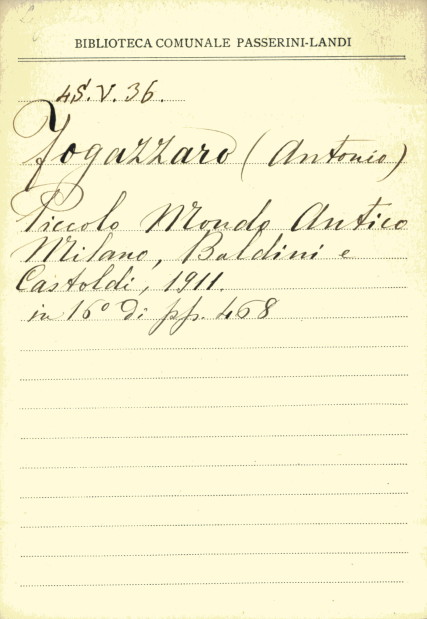 BIBLIOTECA COMUNALE PASSERINI-LANDI
45.V.36.
Fogazzaro (Antonio)
Piccolo Mondo Antico
Milano, Baldini e
Castoldi, 1911.
in 16° di pp. 468